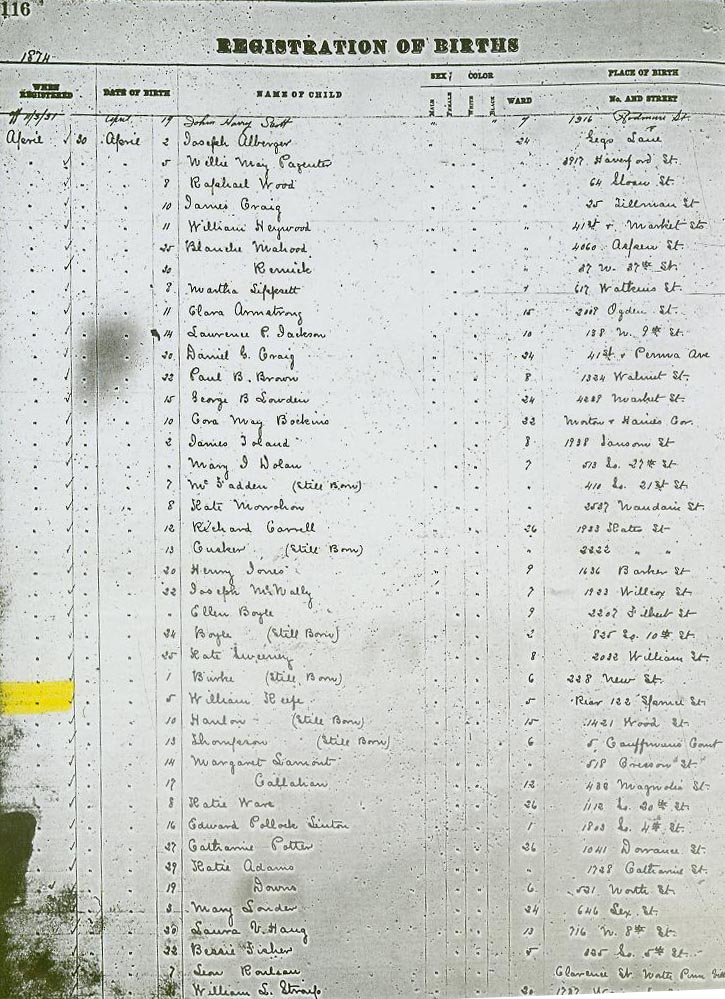 116
REGISTRATION OF BIRTHS
1874
WHEN REGISTERED DATE OF BIRTH NAME OF CHILD SEX COLOR WARD PLACE OF BIRTH
MALE FEMALE WHITE BLACK No. AND STREET
19 John Harry Scott " " 7 1916 St.
April 30 April 2 Joseph Alberger 24 Legs Lane
5 Willie May 3917 Haverford St.
8 Raphael Wood " 64 Sloan St.
10 James Craig " 25 Tillman St
11 William Heywood " 41st & Market Sts
25 Blanche Mahood " 4060 Aspen St.
30 " 37 N. 37th St.
8 Martha Lippsett 1 617 Watkins St.
11 Clara Armstrong 15 Ogden St.
14 Lawrence P. Jackson 10 138 N. 9th St.
20 Daniel C. Craig 24 41st & Penna Ave
22 Paul B. Brown 8 1324 Walnut St.
15 George B Lowden 24 4239 Market St.
10 Cora May Bockins 22 Morton & Haines Cor.
2 James Toland 8 1938 Sansom St
" Mary I Dolan 7 513 So. 27th St.
7 McFadden (Still Born) " 410 So. 21st St.
8 Kate " 2537 Naudain St.
12 Richard Carrell 26 1933 Kates St
13 Cusker (Still Born) " 2222 " "
20 Henry Jones 9 1636 Barker St
22 Joseph McNally 7 1923 Willcox St
" Ellen Boyle 9 2207 Filbert St
24 Boyle (Still Born) 2 825 So. 10th St.
25 Kate Sweeney 8 2032 William St.
1 Burke (Still Born) 6 228 New St.
5 William Keefe 5 Rear 122 St
10 Hanlon (Still Born) 15 1421 Wood St.
13 Thompson (Still Born) 6 5 Court
14 Margaret Lamont " 518 Cresson St.
17 Callahan 12 438 Magnolia St.
8 Katie Ware 26 1112 So. 20th St.
16 Edward Pollock Sinton 1 1803 So. 4th St.
27 Catharine Potter 26 1041 Dorrance St.
29 Katie Adams " 1728 Catharine St.
19 Downs 6 521 Worth St.
3 Mary Louder 24 646 Lex St.
Laura V. Haug 13 716 N. 8th St.
22 Bessie Fisher 5 So. 5th St.
7 Leon Clarence St
William L.